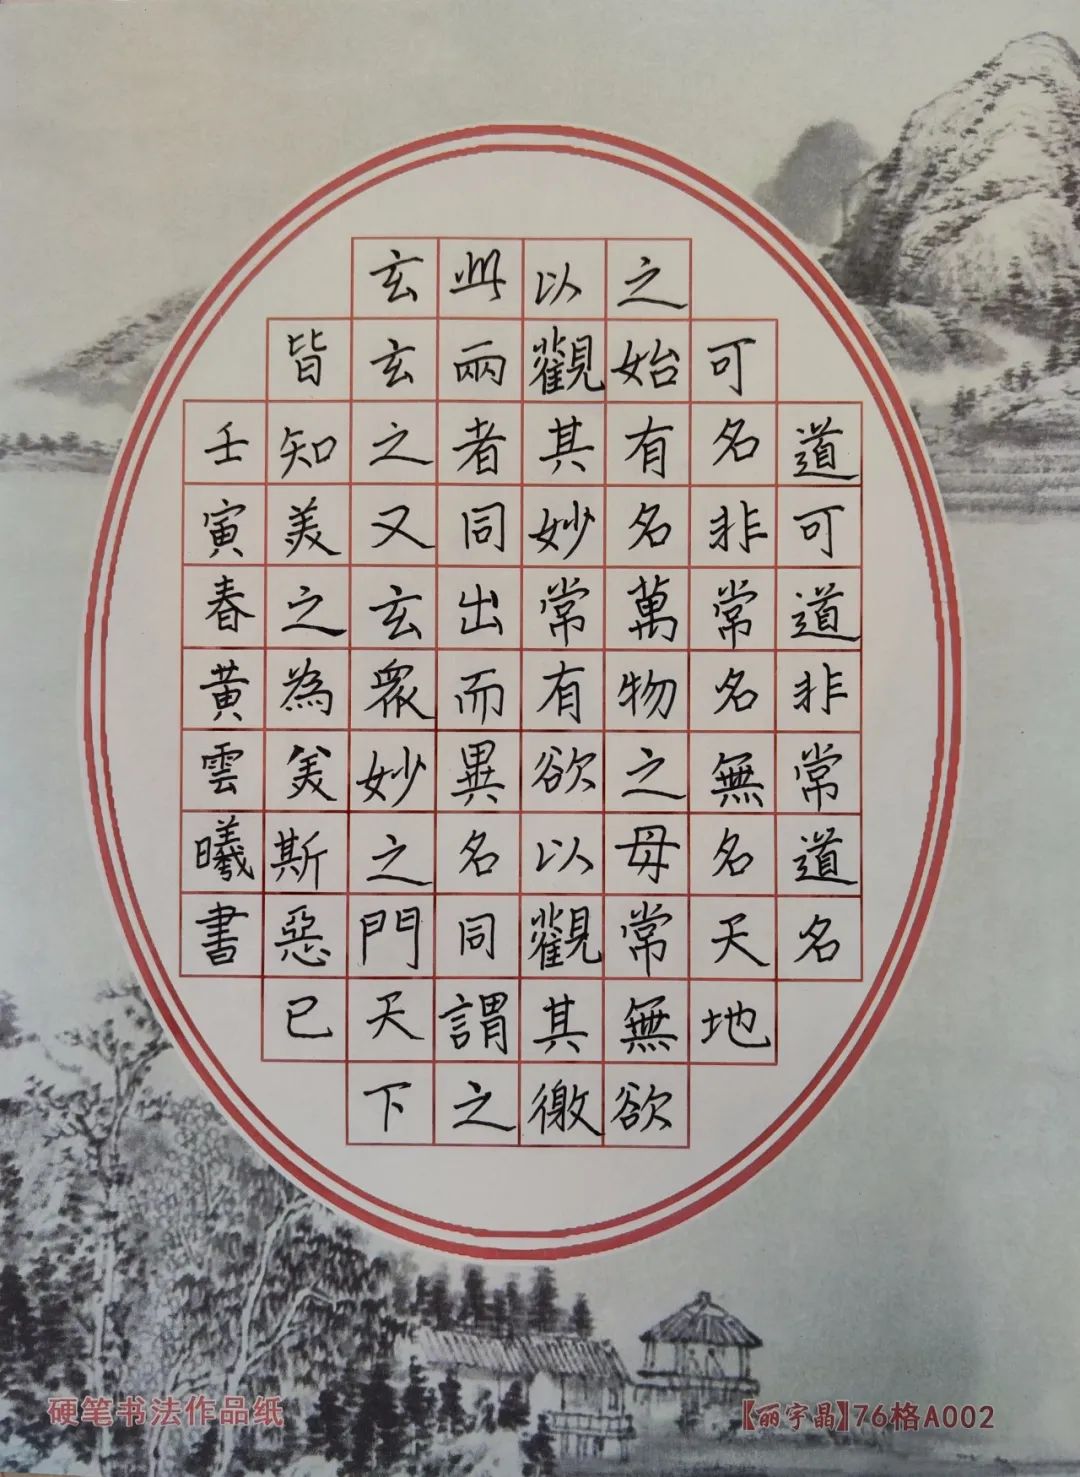 道可道非常道名
可名非常名無名天地
之始有名萬物之母常無欲
以觀其妙常有欲以觀其徼
此兩者同出而異名同謂之
玄玄之又玄衆妙之門天下
皆知美之為美斯惡已
壬寅春黃雲曦書
硬笔书法作品纸
【丽宇晶】76格A002